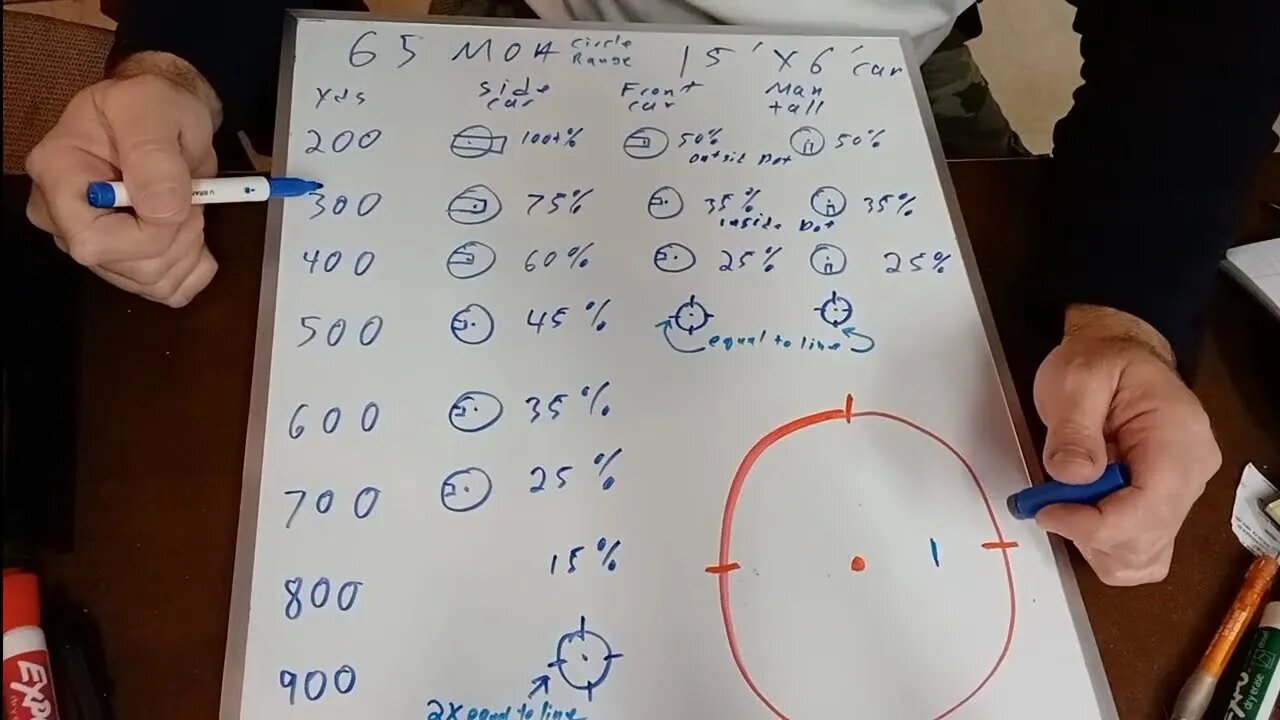 65 MOA Circle Range 15' X 6' car
Yds Side car Front car Man tall
200 100+% 50% outsid Dot 50%
300 75% 35% inside Dot 35%
400 60% 25% 25%
500 45% equal to line
600 35%
700 25%
800 15%
900
2x equal to line
EXPO